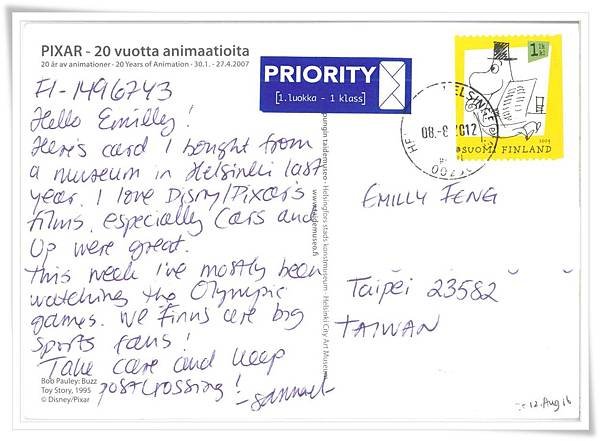 PIXAR - 20 vuotta animaatioita
20 år av animationer - 20 Years of Animation - 30.1. - 27.4.2007
FI-1496743
Hello Emilly!
Here's card I bought from
a museum in Helsinki last
year. I love Disny/Pixar's
films, especially Cars and
Up were great.
This week I've mostly been
watching the Olympic
games. We Finns are big
sports fans!
Take care and keep
postcrossing!
-Sammel
Bob Pauley: Buzz
Toy Story, 1995
© Disney/Pixar
PRIORITY
[1.luokka - 1 klass]
1
SUOMI FINLAND
08.-8.2012
www.taidemuseo.fi
Helsingfors stads konstmuseum - Helsinki City Art Museum
EMILLY FENG
Taipei 23582
TAIWAN
12.Aug